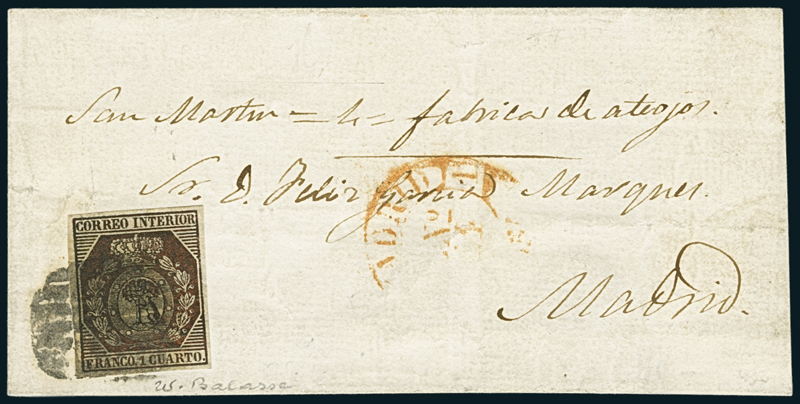 San Martin = 4 = fabrica de ateojos.
Sr. D. Feliz Garcia Marques.
Madrid.
CORREO INTERIOR
FRANCO. 1 CUARTO.
W. Balasse